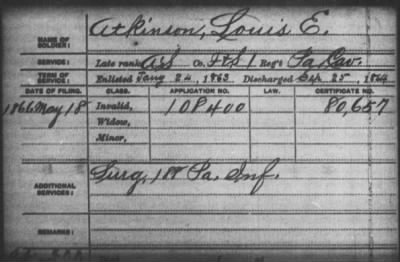 NAME OF SOLDIER: Atkinson, Louis E.
SERVICE: Late rank AS Co. F&S 1 Reg't Pa. Cav.
TERM OF SERVICE: Enlisted 24, 1863 Discharged Sep. 25, 1864
DATE OF FILING. CLASS. APPLICATION NO. LAW. CERTIFICATE NO.
1866 May 18 Invalid, 108400 80,657
Widow,
Minor,
ADDITIONAL SERVICES: Surg. 188 Pa. Inf.
REMARKS: